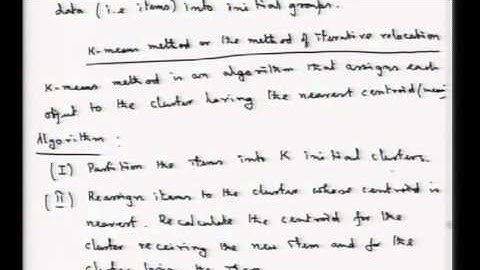 data (i.e items) into initial groups.
K-means method or the method of iterative relocation
K-means method is an algorithm that assigns each
object to the cluster having the nearest centroid (mean)
Algorithm :
(I) Partition the items into K initial clusters.
(II) Reassign items to the cluster whose centroid is
nearest. Recalculate the centroid for the
cluster receiving the new item and for the
cluster losing the item